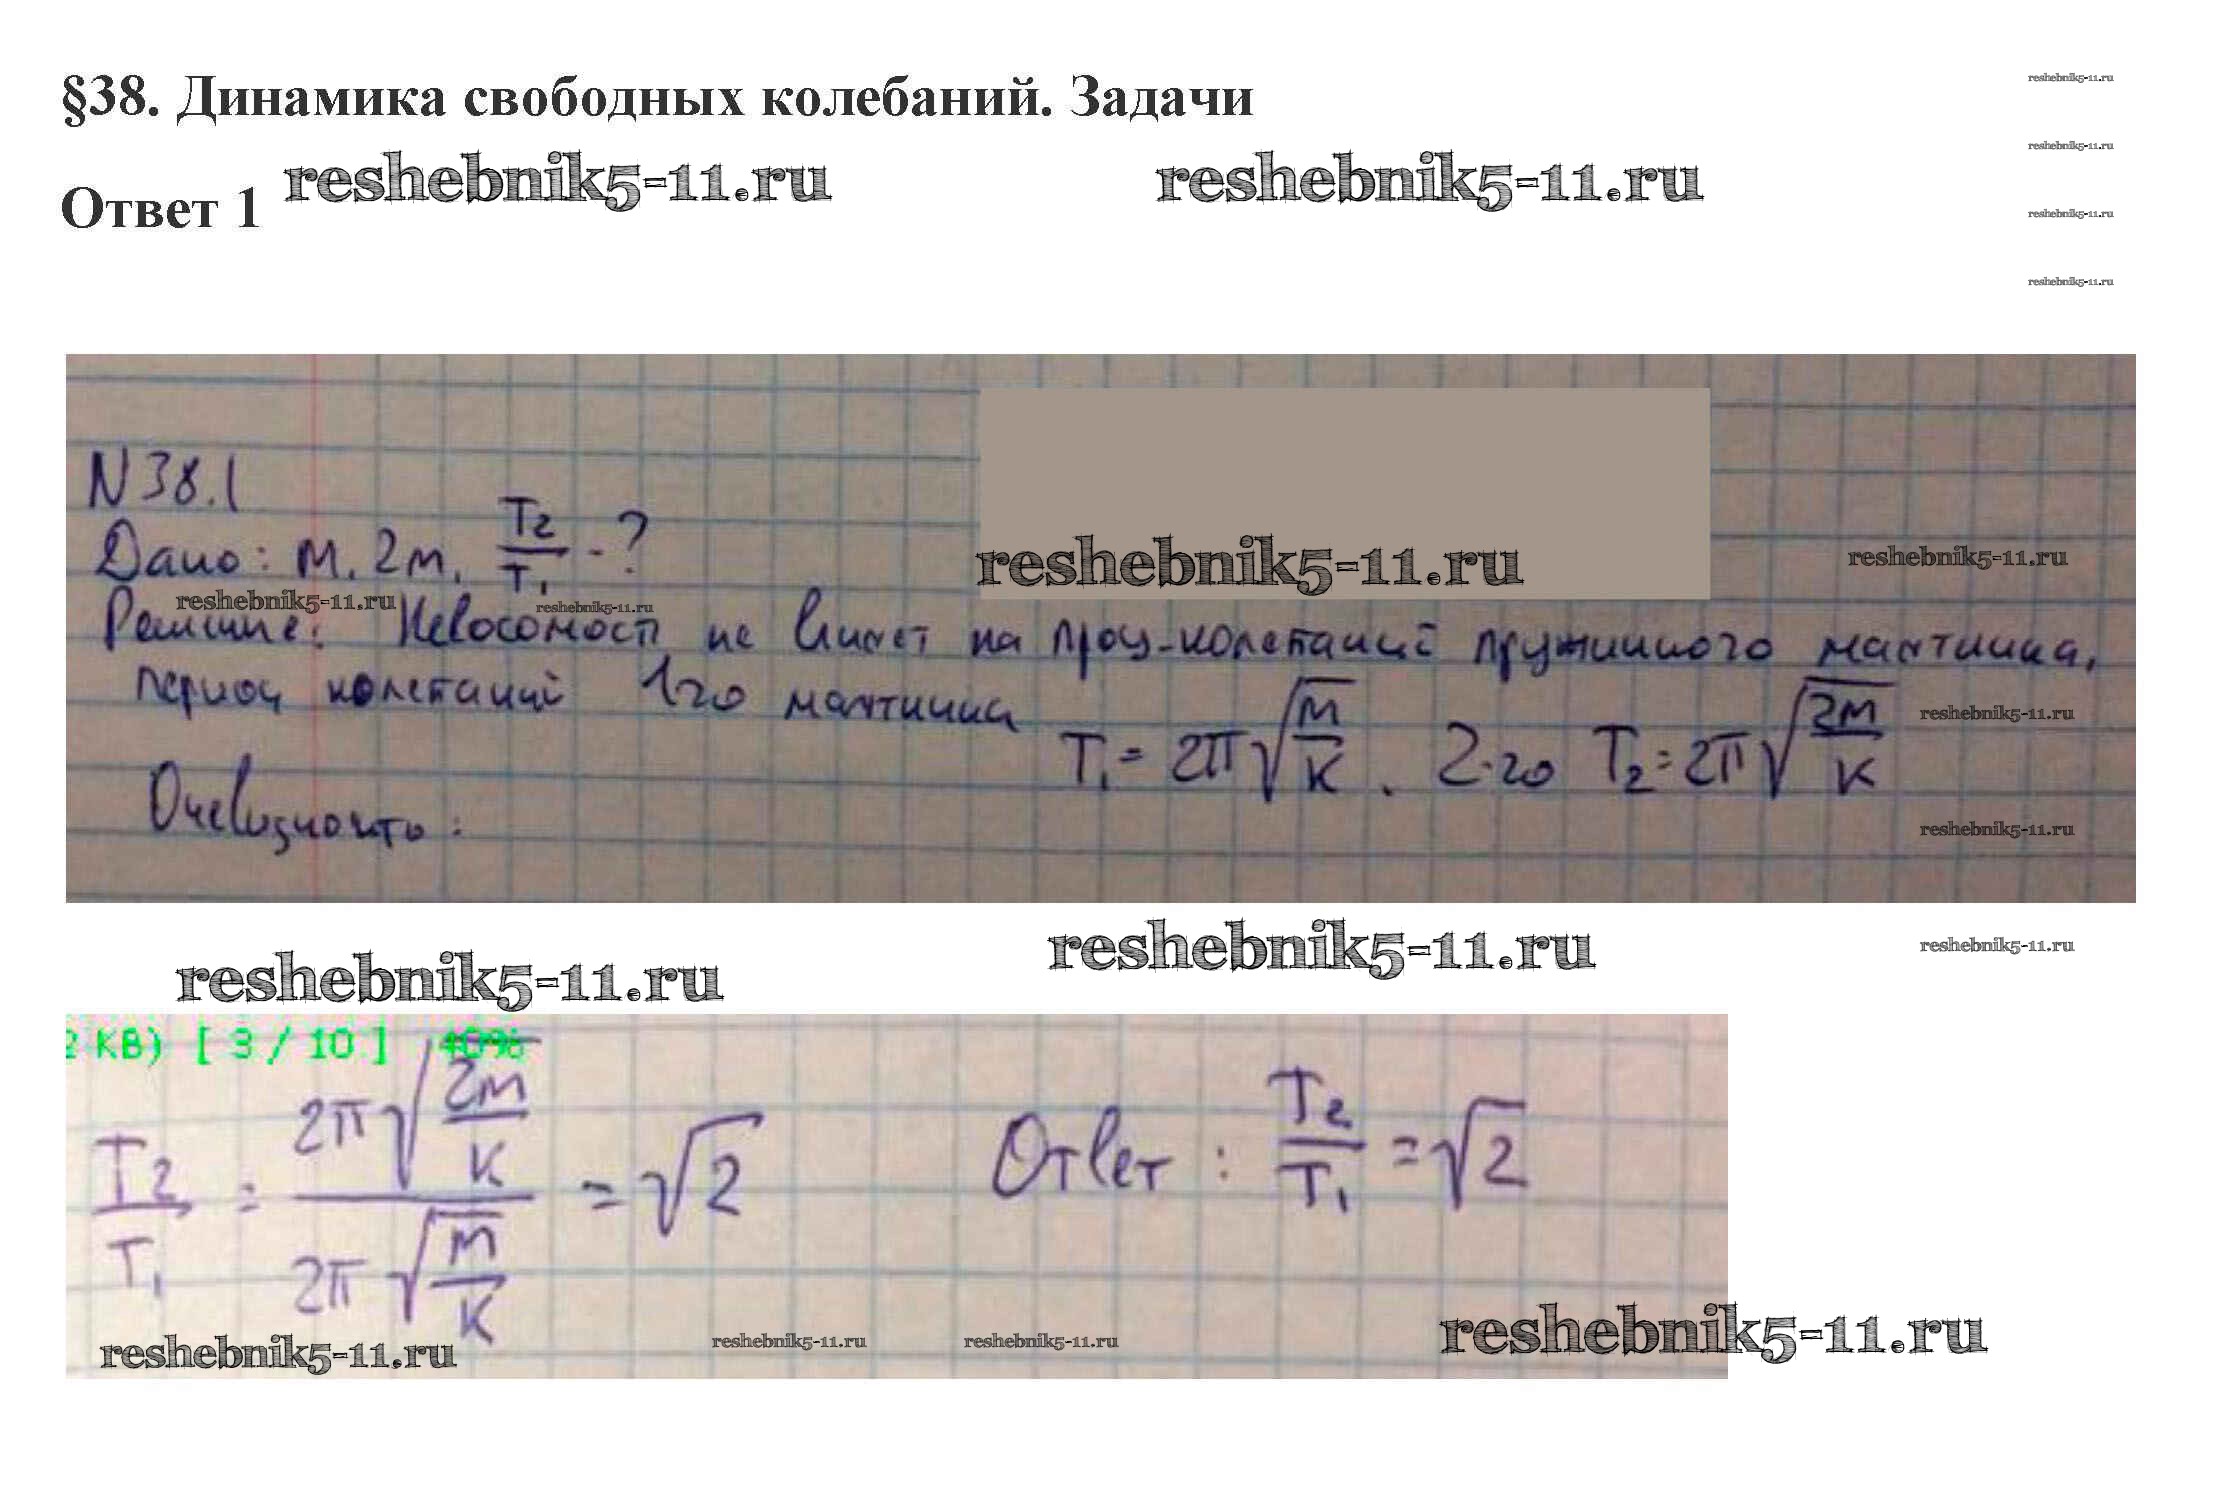 §38. Динамика свободных колебаний. Задачи
reshebnik5-11.ru
reshebnik5-11.ru
reshebnik5-11.ru
reshebnik5-11.ru
Ответ 1 reshebnik5-11.ru reshebnik5-11.ru
N 38.1
Дано: м, 2м, T2/T1 - ?
reshebnik5-11.ru reshebnik5-11.ru
reshebnik5-11.ru reshebnik5-11.ru
Решение: Невесомость не влияет на проц. колебаний пружинного маятника,
период колебаний 1го маятника T1 = 2π√(м/к). 2-го T2 = 2π√(2м/к)
reshebnik5-11.ru
Очевидно что:
reshebnik5-11.ru
reshebnik5-11.ru reshebnik5-11.ru reshebnik5-11.ru
2 KB) [ 3 / 10 ] 40%
T2/T1 = 2π√(2м/к) / 2π√(м/к) = √2 Ответ: T2/T1 = √2
reshebnik5-11.ru reshebnik5-11.ru reshebnik5-11.ru reshebnik5-11.ru